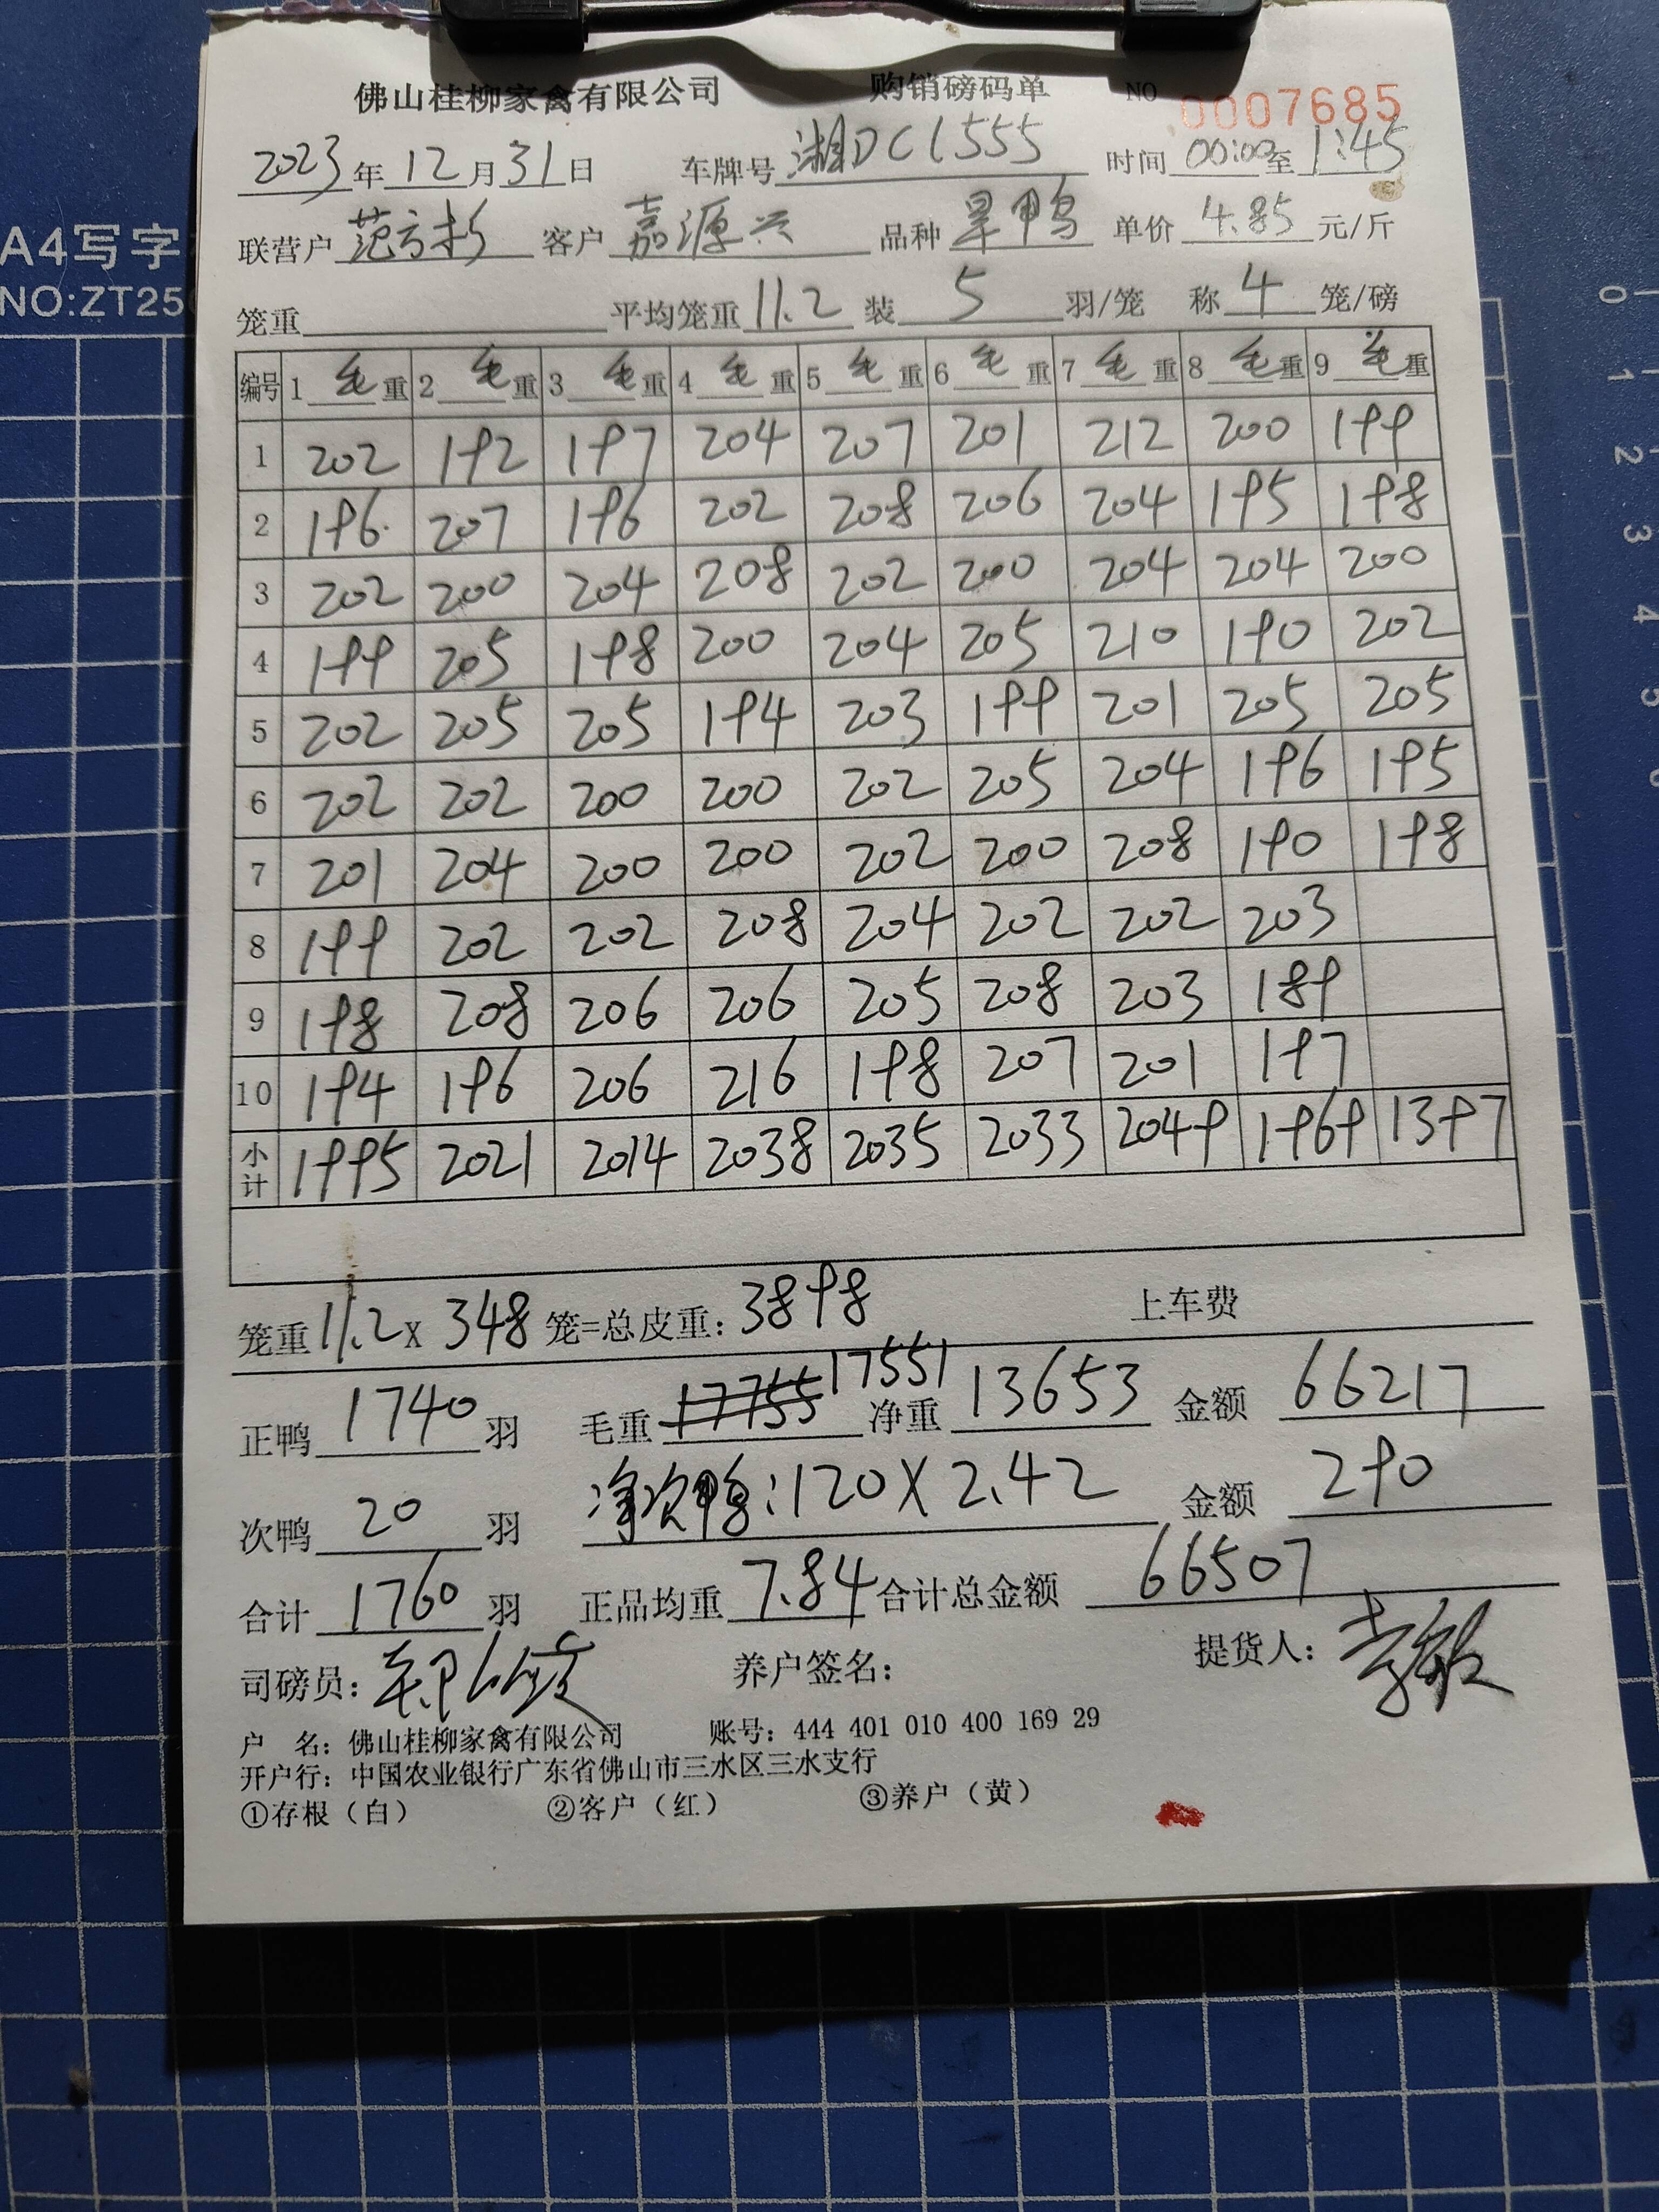 佛山桂柳家禽有限公司 购销磅码单 NO 0007685
2023年12月31日 车牌号 湘DC1555 时间 00:00至1:45
联营户 范方杉 客户 嘉源兴 品种 旱鸭 单价 4.85 元/斤
笼重 平均笼重 11.2 装 5 羽/笼 称 4 笼/磅
编号 1 毛重 2 毛重 3 毛重 4 毛重 5 毛重 6 毛重 7 毛重 8 毛重 9 毛重
1 202 192 197 204 207 201 212 200 199
2 196 207 196 202 208 206 204 195 198
3 202 200 204 208 202 200 204 204 200
4 199 205 198 200 204 205 210 190 202
5 202 205 205 194 203 199 201 205 205
6 202 202 200 200 202 205 204 196 195
7 201 204 200 200 202 200 208 190 198
8 199 202 202 208 204 202 202 203
9 198 208 206 206 205 208 203 189
10 194 196 206 216 198 207 201 197
小计 1995 2021 2014 2038 2035 2033 2049 1969 1397
笼重 11.2 X 348 笼=总皮重: 3898 上车费
正鸭 1740 羽 毛重 17755 17551 净重 13653 金额 66217
次鸭 20 羽 净次鸭:120X2.42 金额 290
合计 1760 羽 正品均重 7.84 合计总金额 66507
司磅员: 养户签名: 提货人:
户 名: 佛山桂柳家禽有限公司 账号: 444 401 010 400 169 29
开户行: 中国农业银行广东省佛山市三水区三水支行
①存根(白) ②客户(红) ③养户(黄)
A4写字
NO:ZT25
0
1
2
3
4
5
6